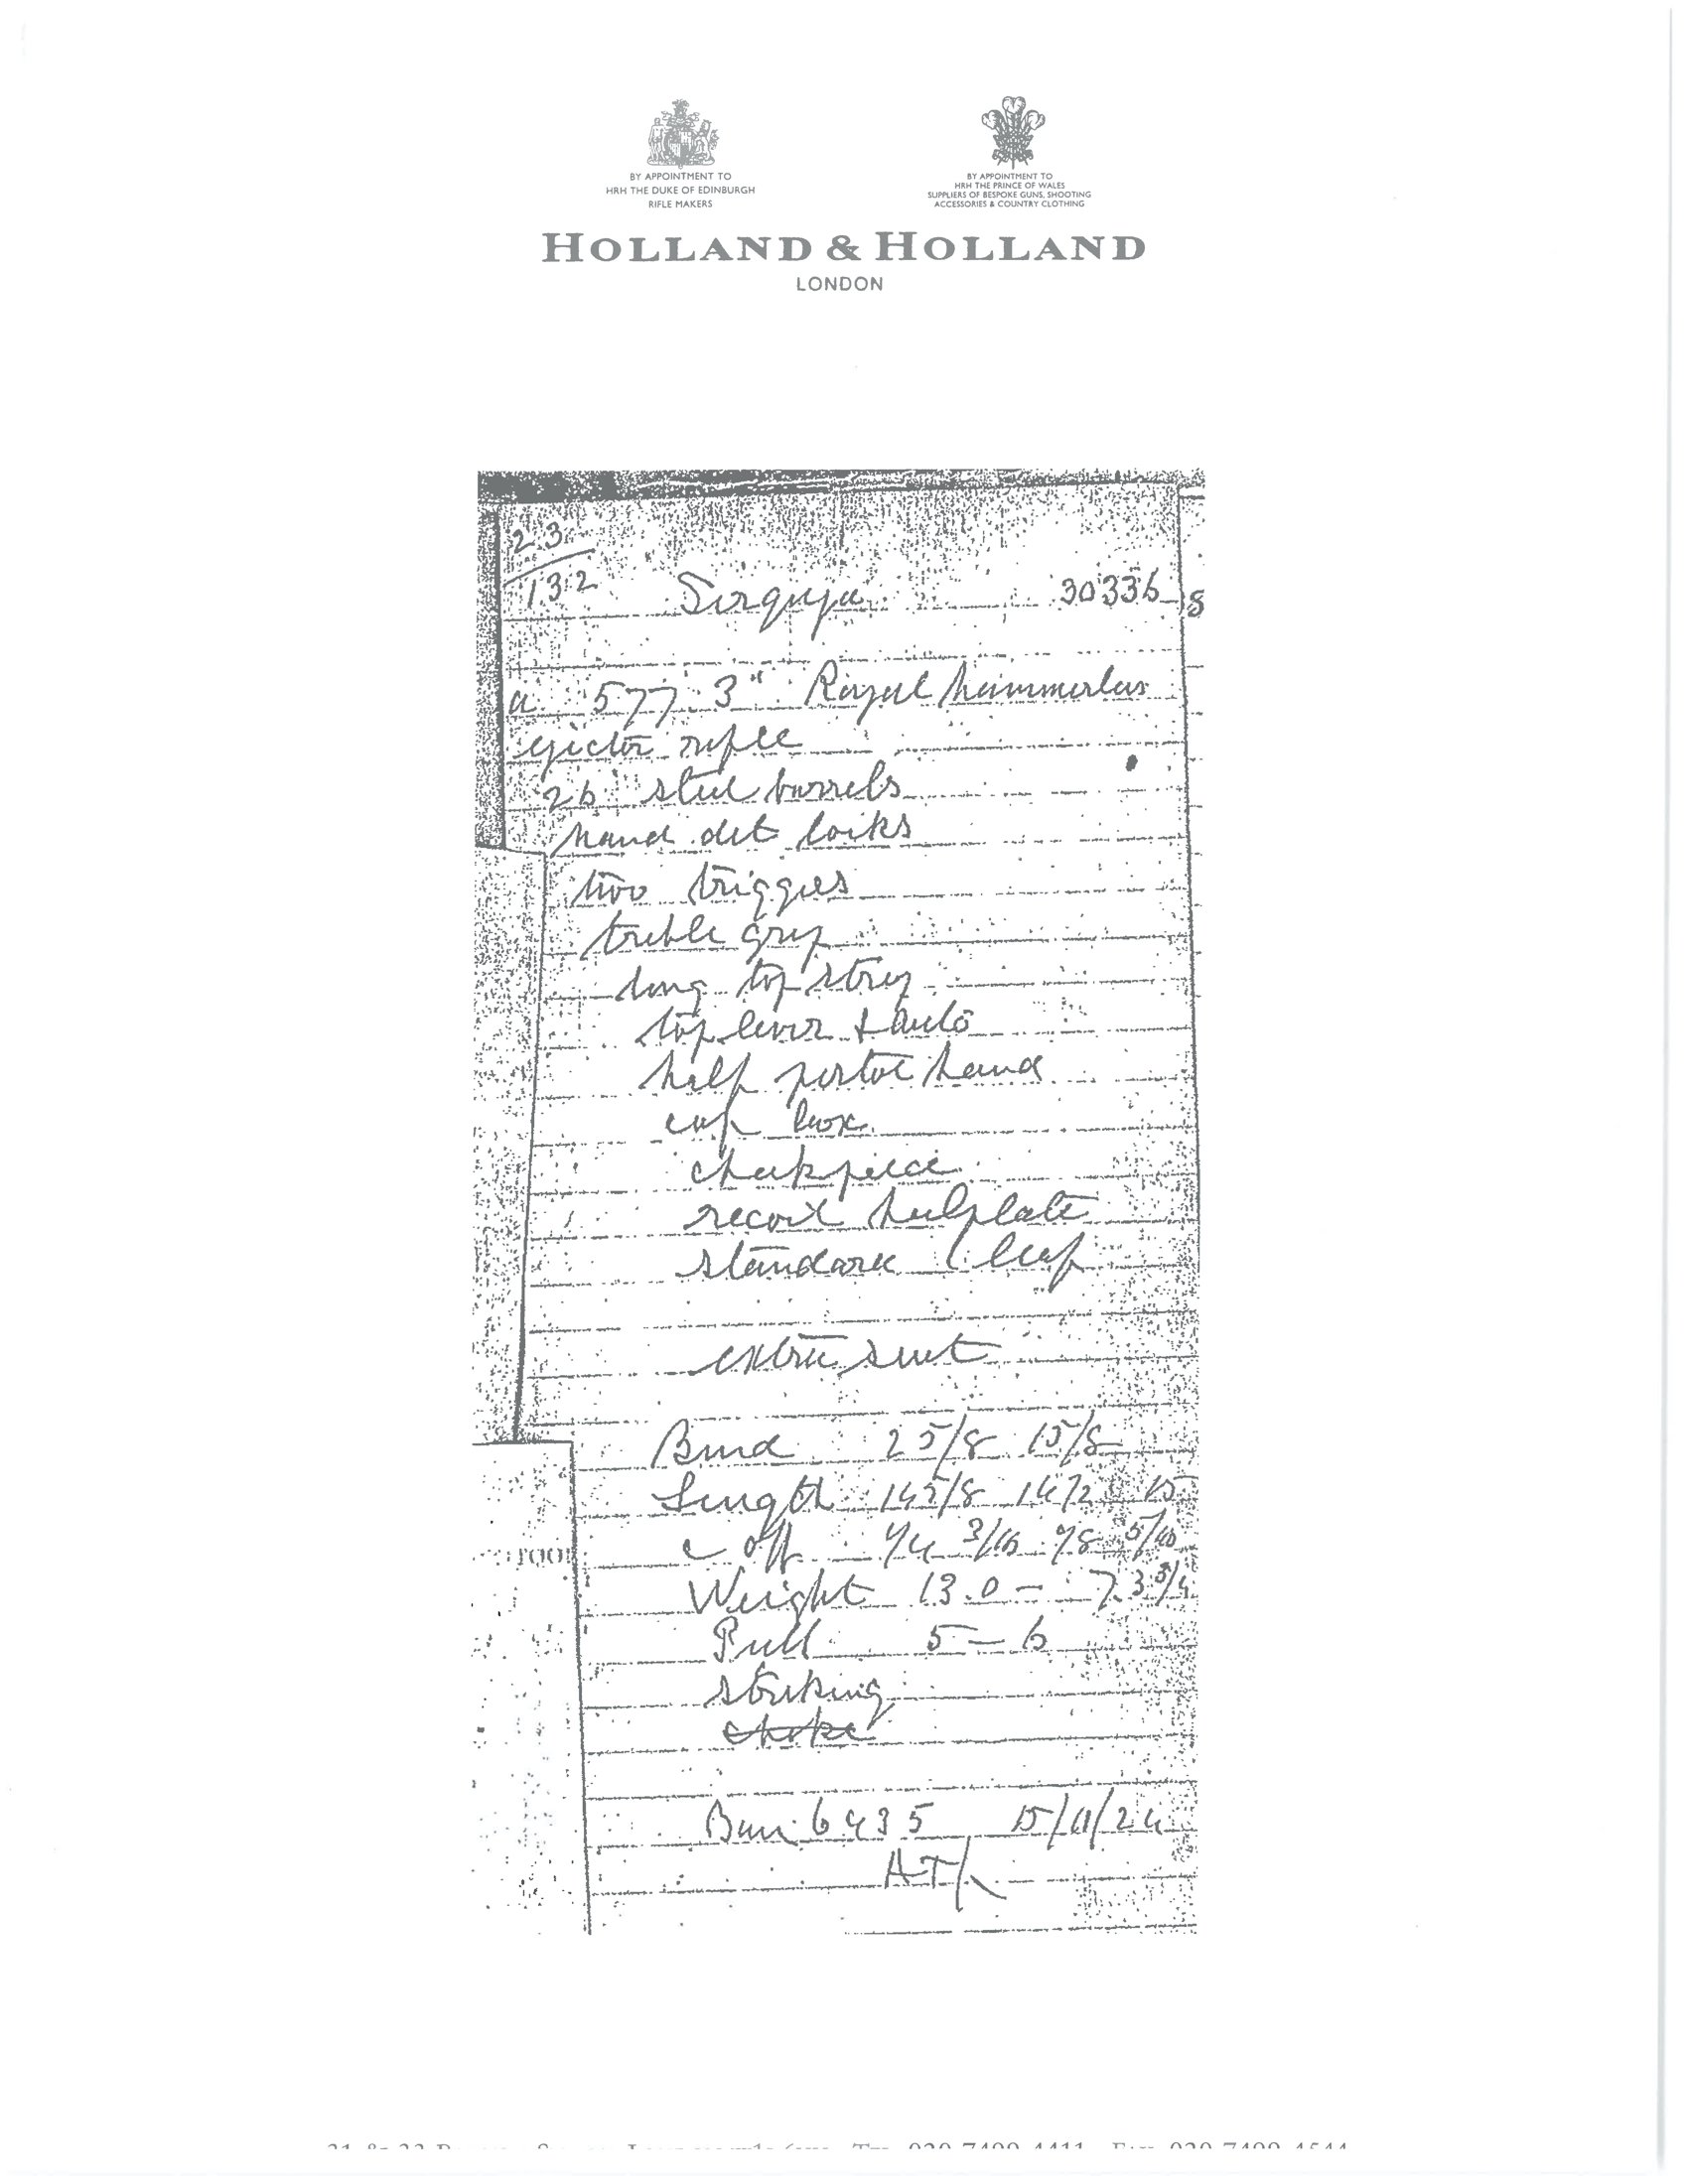 BY APPOINTMENT TO
HRH THE DUKE OF EDINBURGH
RIFLE MAKERS
BY APPOINTMENT TO
HRH THE PRINCE OF WALES
SUPPLIERS OF BESPOKE GUNS, SHOOTING
ACCESSORIES & COUNTRY CLOTHING
HOLLAND & HOLLAND
LONDON
23
132 Surguja 30336
a 577 3" Royal hammerless
ejector rifle
26 steel barrels
hand det locks
two triggers
treble grip
long top strap
top lever & auto
half pistol hand
cap box
cheekpiece
recoil heelplate
standard 1 leaf
extra
Bend 2 5/8 1 5/8
Length 14 5/8 14 1/2 15
c off 1/4 3/16 3/8 5/16
Weight 13.0 - 7.3 3/4
Pull 5 - 6
stocking
choke
6435 15/11/24
020 7499 4411 Fax 020 7499 4544